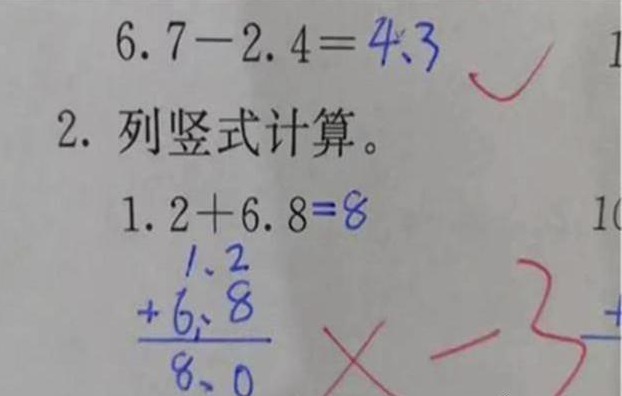 6.7-2.4=4.3 ✓
2. 列竖式计算。
1.2+6.8=8
1.2
+6.8
8.0 × -3